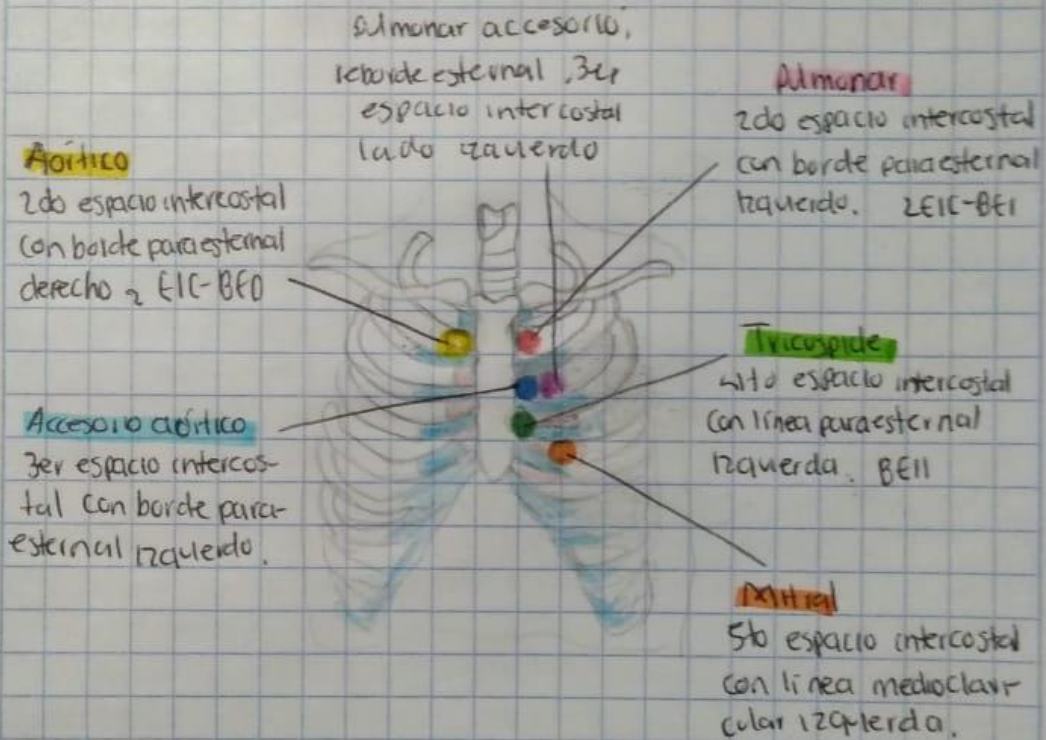 Pulmonar accesorio,
reborde esternal, 3er
espacio intercostal
lado izquierdo
Pulmonar
2do espacio intercostal
con borde paraesternal
izquierdo. 2EIC-BEI
Aórtico
2do espacio intercostal
con borde paraesternal
derecho 2 EIC-BED
Tricuspide
4to espacio intercostal
con línea paraesternal
izquierda. BEII
Accesorio aórtico
3er espacio intercos-
tal con borde para-
esternal izquierdo.
Mitral
5to espacio intercostal
con línea medioclavi-
cular izquierda.